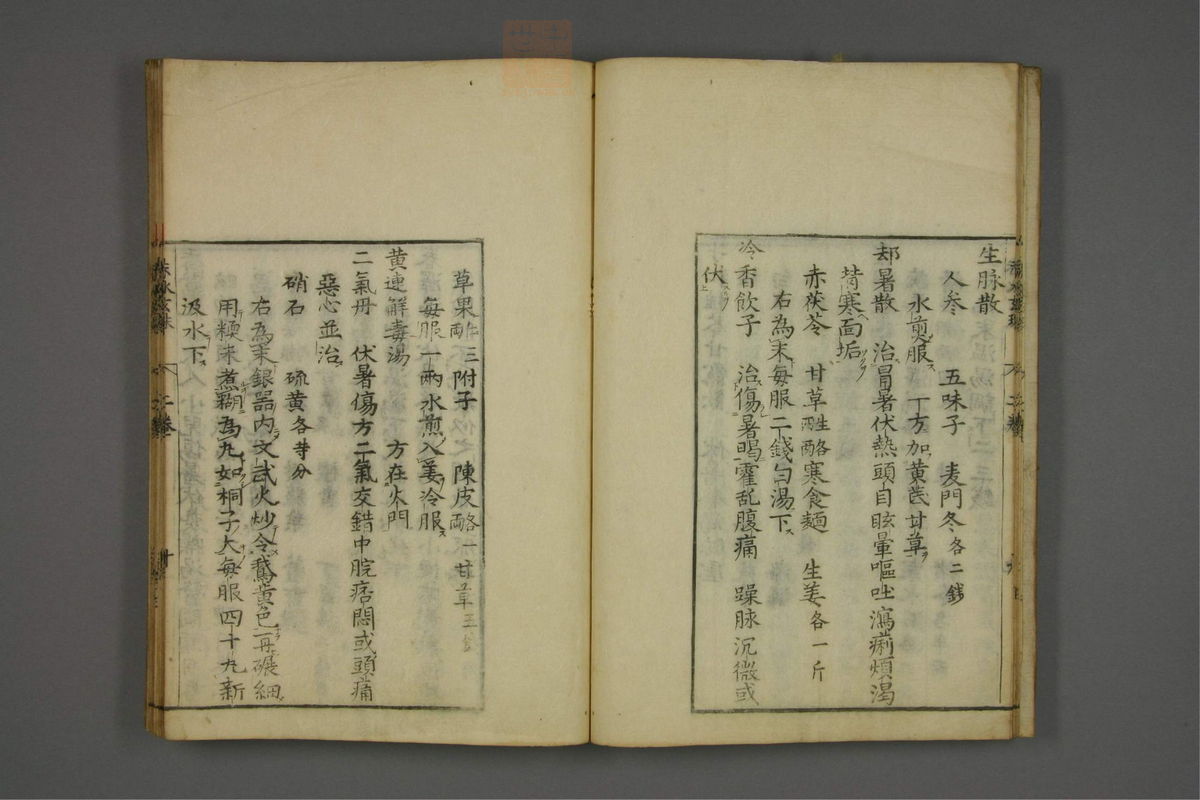 生脉散
人参 五味子 麦門冬各二錢
水煎服 一方加黄茋甘草
却暑散 治冒暑伏熱頭目眩暈嘔吐瀉痢煩渴
背寒面垢
赤茯苓 甘草 寒食麵 生姜各一斤
右為末每服二錢白湯下
冷香飲子 治傷暑暍霍乱腹痛 躁脉沉微或
伏
草果 三附子 陳皮 一甘草
每服一兩水煎入姜冷服
黄連解毒湯 方在火門
二氣丹 伏暑傷方二氣交錯中脘痞悶或頭痛
惡心並治
硝石 硫黄各等分
右為末銀器内文武火炒令鵝黄色再碾細
用糯米煮糊為丸如桐子大每服四十丸新
汲水下